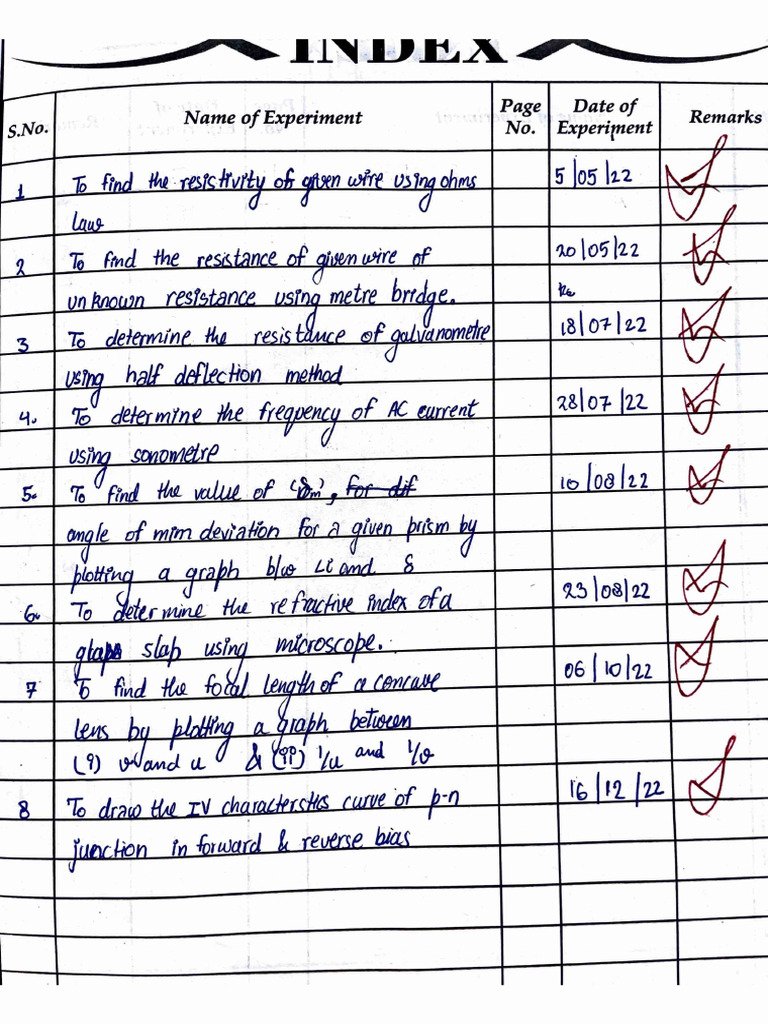 INDEX
S.No. Name of Experiment Page No. Date of Experiment Remarks
1 To find the resistivity of given wire using ohms 5/05/22
law
2 To find the resistance of given wire of 20/05/22
unknown resistance using metre bridge.
3 To determine the resistance of galvanometre 18/07/22
using half deflection method
4. To determine the frequency of AC current 28/07/22
using sonometre
5. To find the value of 'δm', for dif 10/08/22
angle of mim deviation for a given prism by
plotting a graph b/w Li and δ
6. To determine the refractive index of a 23/08/22
slap using microscope.
7 To find the focal length of a concave 06/10/22
lens by plotting a graph between
(i) v and u & (ii) 1/u and 1/v
8 To draw the IV characterstics curve of p-n 16/12/22
junction in forward & reverse bias